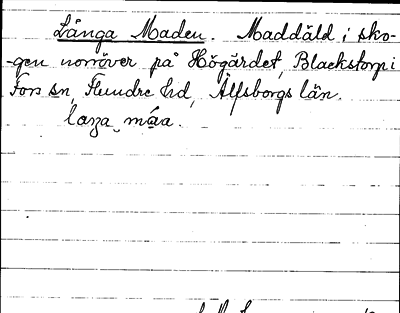 Långa Maden. Maddäld i sko-
-gen norröver på Högärdet, Blackstorp i
Fors sn, Flundre hd, Älfsborgs län.
laŋa ma̱a.